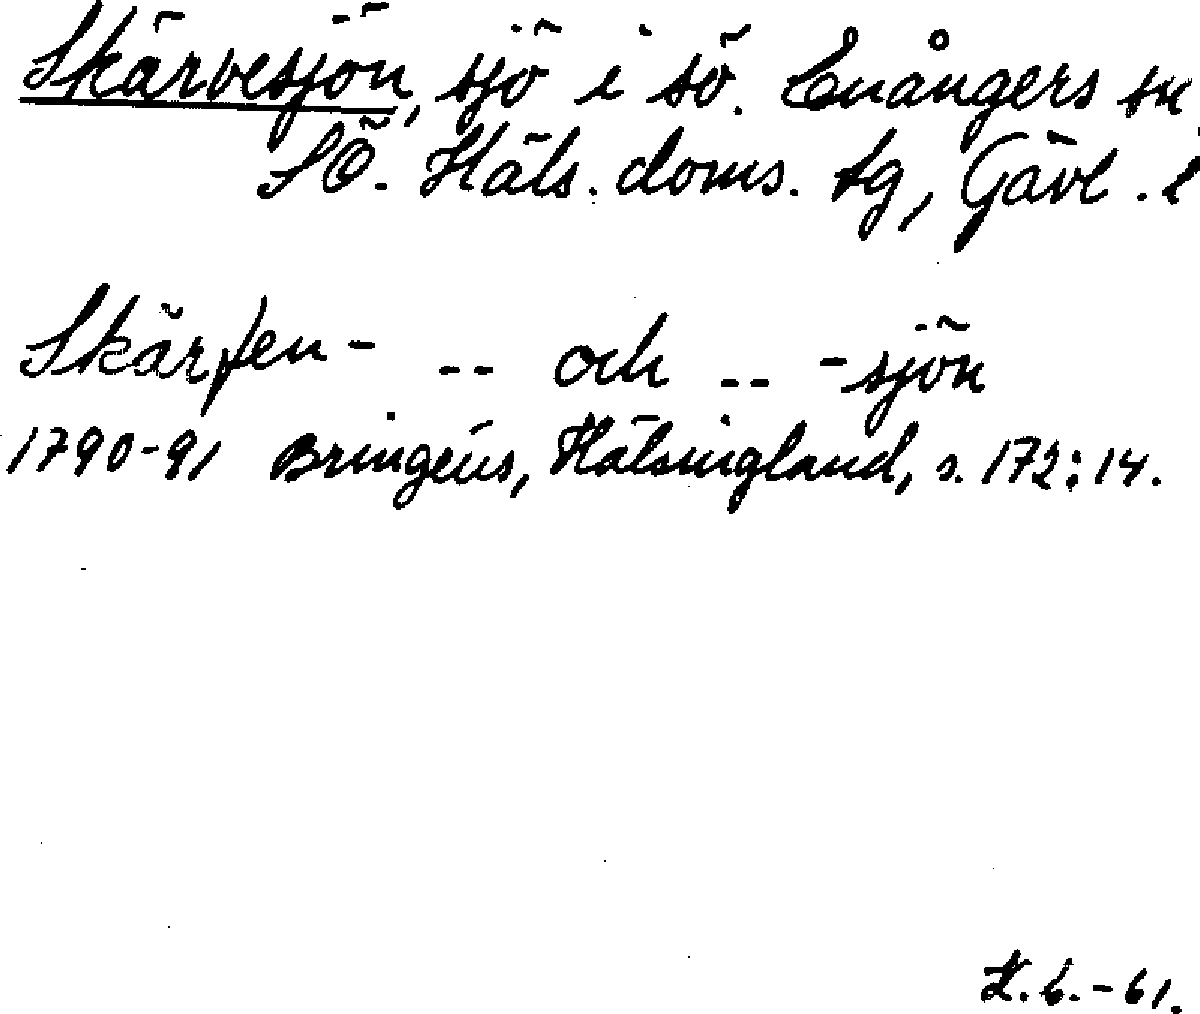 Skärvesjön, sjö i sö. Enångers sn,
SÖ. Häls. doms. tg, Gävl. l
Skärfen- -- och -- -sjön
1790-91 Bringéus, Hälsingland, s. 172:14.
H.b.-61.